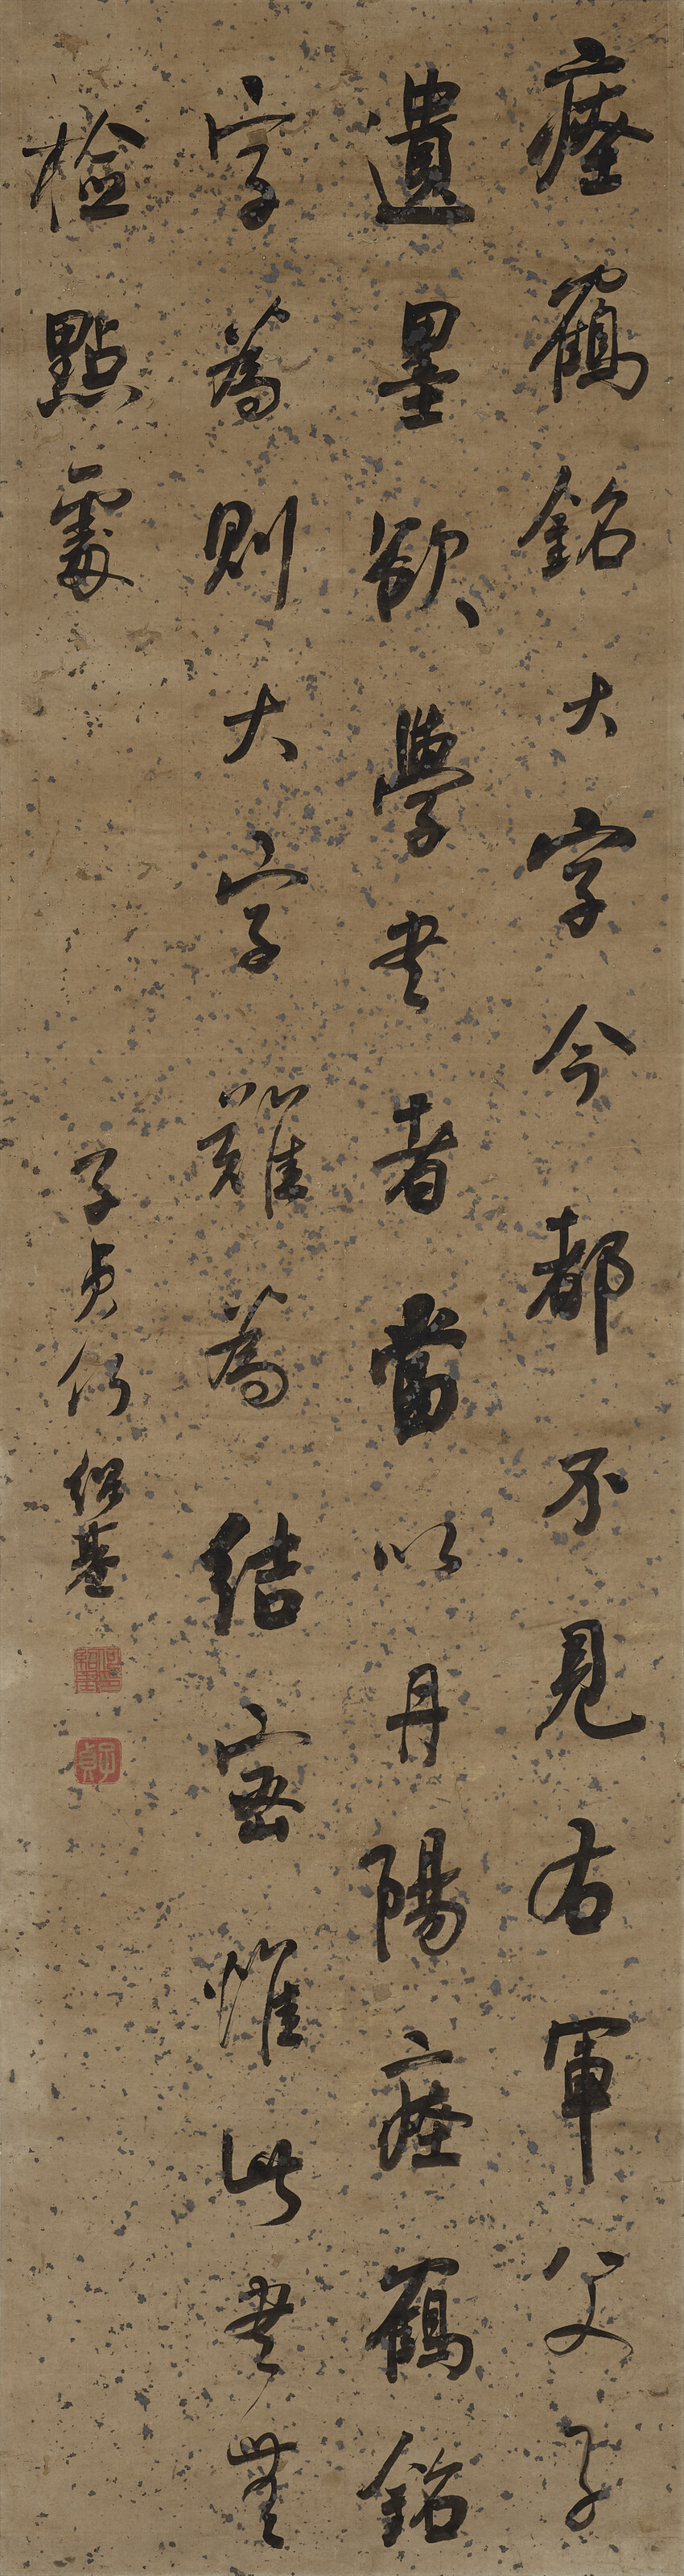 瘞鶴銘大字今都不見右軍父子
遺墨欲學書者當以丹陽瘞鶴銘
字為則大字難為結密惟此書無
檢點處
子貞仁兄紹基
何紹基
子貞